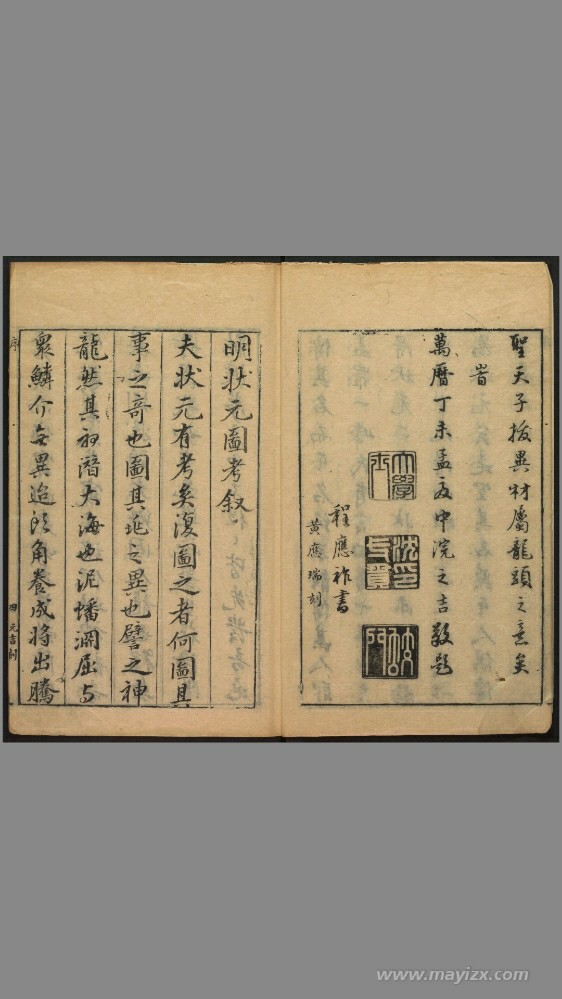 聖天子拔異材屬龍頭之意矣
旹
萬曆丁未孟夏中浣之吉敬題
程應祚書
黃應瑞刻
大學士
沈一貫印
明狀元圖考叙
夫狀元有考矣復圖之者何圖其
事之奇也圖其兆之異也譬之神
龍然其初潛大海也泥蟠淵屈与
衆鱗介無異迨頭角養成將出騰
序
www.mayizx.com